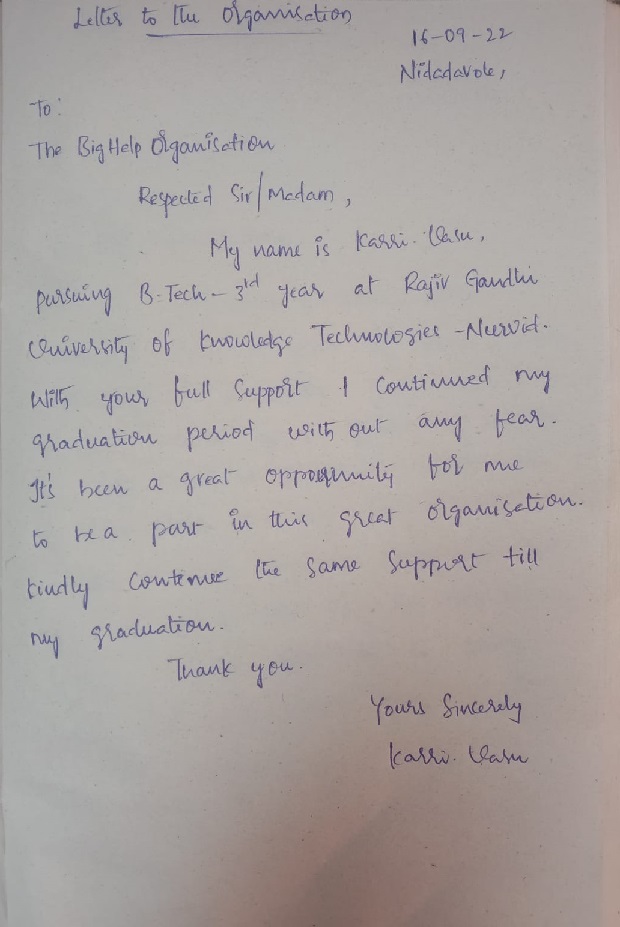 Letter to the Organisation
16-09-22
Nidadavole,
To:
The Big Help Organisation
Respected Sir/Madam,
My name is Karri. Vasu,
pursuing B.Tech - 3rd year at Rajiv Gandhi
University of Knowledge Technologies - Nuzvid.
With your full support I continued my
graduation period with out any fear.
It's been a great opportunity for me
to be a part in this great organisation.
kindly continue the same support till
my graduation.
Thank you.
Yours Sincerely
Karri. Vasu